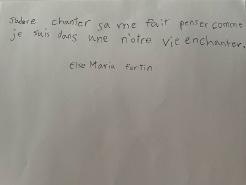 J'adore chanter ça me fait penser comme
je suis dans une n'otre vie enchanter.
Else Maria Fortin